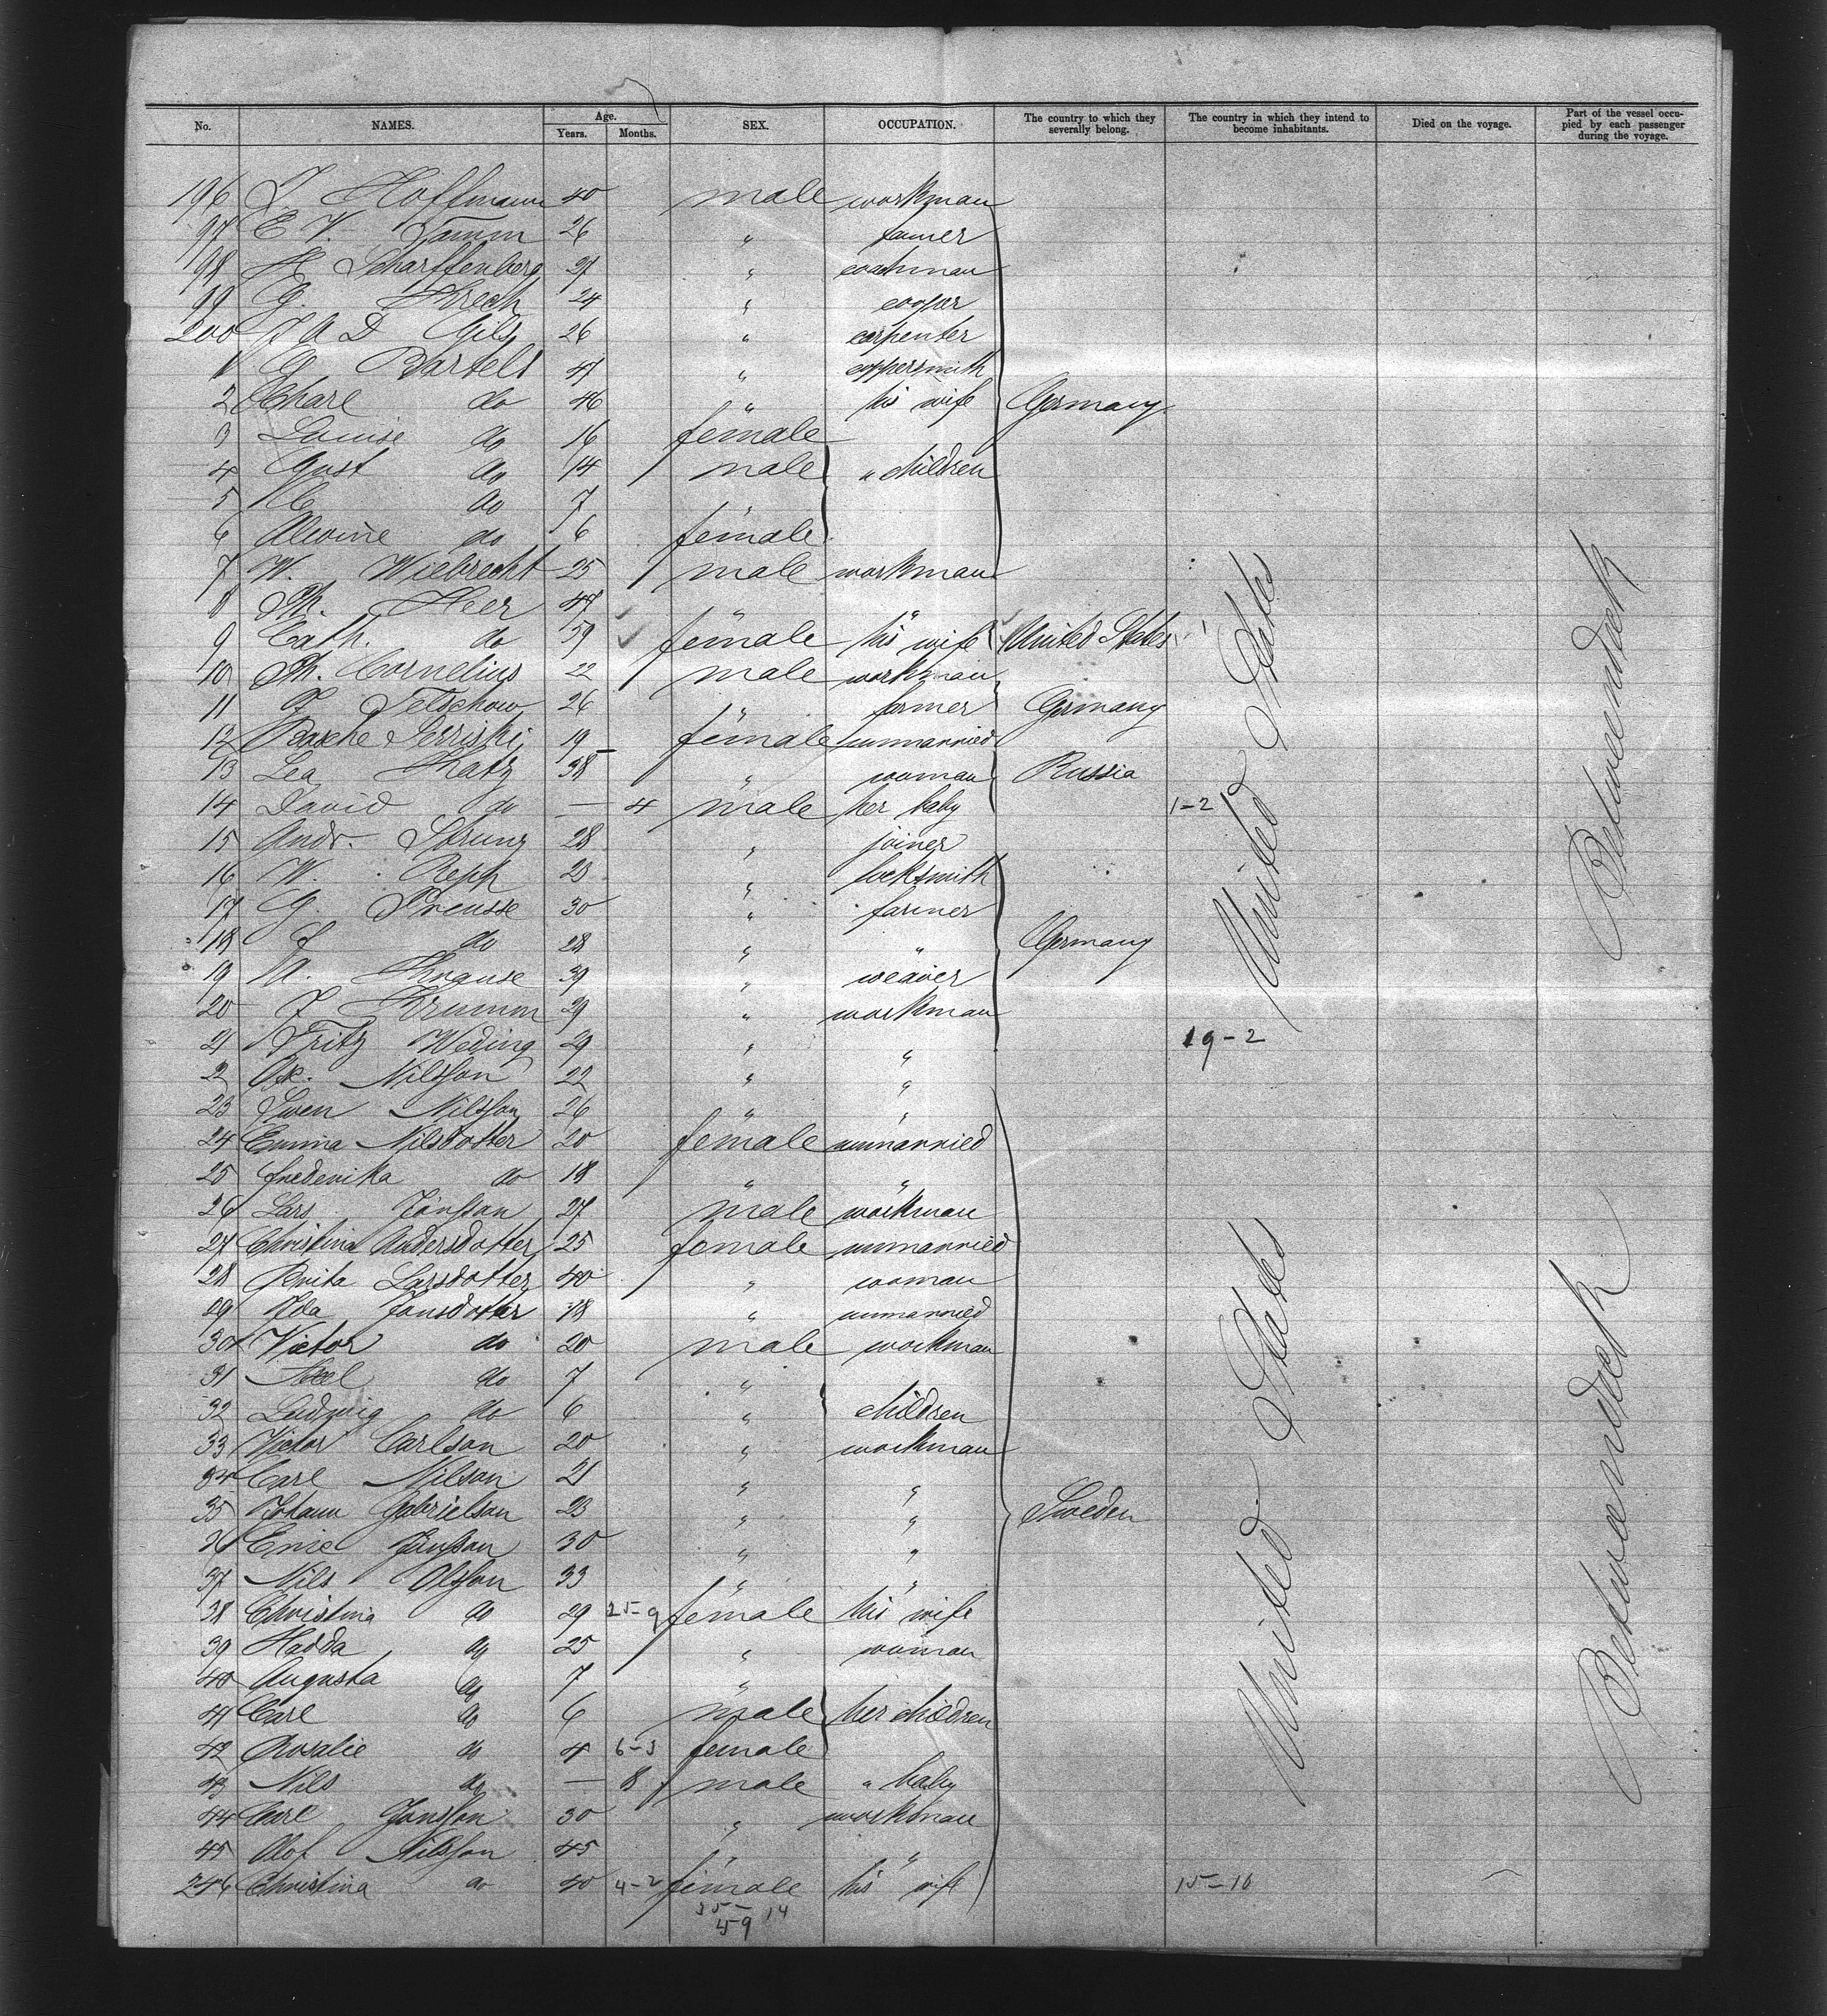 No. NAMES. Age. Years. Months. SEX. OCCUPATION. The country to which they severally belong. The country in which they intend to become inhabitants. Died on the voyage. Part of the vessel occupied by each passenger during the voyage.
196 Hoffmann 40 male workman
97 E V. 26 " farmer
98 Scharffenberg 27 " coachman
99 G. 24 " cooper
200 26 " carpenter
1 Bartels 47 " coppersmith
2 do 46 " his wife Germany
3 Louise do 16 female
4 Gust do 14 male " children
5 do 7 "
6 Alwine do 6 female
7 W. Wiebrecht 25 male workman
8 Ph. Heer 47 " "
9 Cath. do 59 female his wife United States
10 Ph. Cornelius 22 male workman
11 F Telschow 26 " farmer Germany
12 19 female unmarried
13 Lea Katz 38 " woman Russia
14 David do — 4 male her baby 1-2
15 Andr. Strunz 28 " joiner
16 W. Reph 23 " locksmith
17 G. Preusse 30 " farmer
18 do 28 " " Germany
19 A. Krause 39 " weaver
20 F Krumm 29 " workman
21 Fritz Weding 29 " " 19-2
2 Nilsson 22 " "
23 Swen Nilsson 26 " "
24 Emma Nilsdotter 20 female unmarried
25 Frederika do 18 " "
26 Lars Jonsson 27 male workman
27 Christina Andersdotter 25 female unmarried
28 Brita Larsdotter 40 " woman
29 Ida Jonsdotter 18 " unmarried
30 Victor do 20 male workman
31 Axel do 7 "
32 Ludwig do 6 " children
33 Victor Carlson 20 " workman
34 Carl Nilson 21 " "
35 Johann Gabrielson 23 " " Sweden
36 Eric Jonsson 30 " "
37 Nils Olsson 33 " "
38 Christina do 29 25-9 female his wife
39 Hadda do 25 " woman
40 Augusta do 7 "
41 Carl do 6 male her children
42 Rosalie do 4 6-3 female
43 Nils do — 8 male " baby
44 Carl Jonsson 30 " workman
45 Olof Nilsson 45 " "
246 Christina do 40 4-2 female his wife 15-10
35-14
49
United States
Betweendeck
United States
Betweendeck